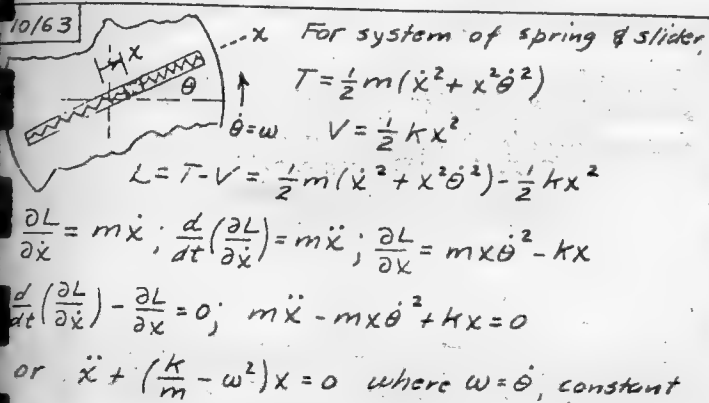 10/63
x
θ
---x
θ̇=ω
For system of spring & slider,
T = ½ m(ẋ² + x²θ̇²)
V = ½ kx²
L = T-V = ½ m(ẋ² + x²θ̇²) - ½ kx²
∂L/∂ẋ = mẋ ; d/dt(∂L/∂ẋ) = mẍ ; ∂L/∂x = mxθ̇² - kx
d/dt(∂L/∂ẋ) - ∂L/∂x = 0; mẍ - mxθ̇² + kx = 0
or ẍ + (k/m - ω²)x = 0 where ω = θ̇, constant